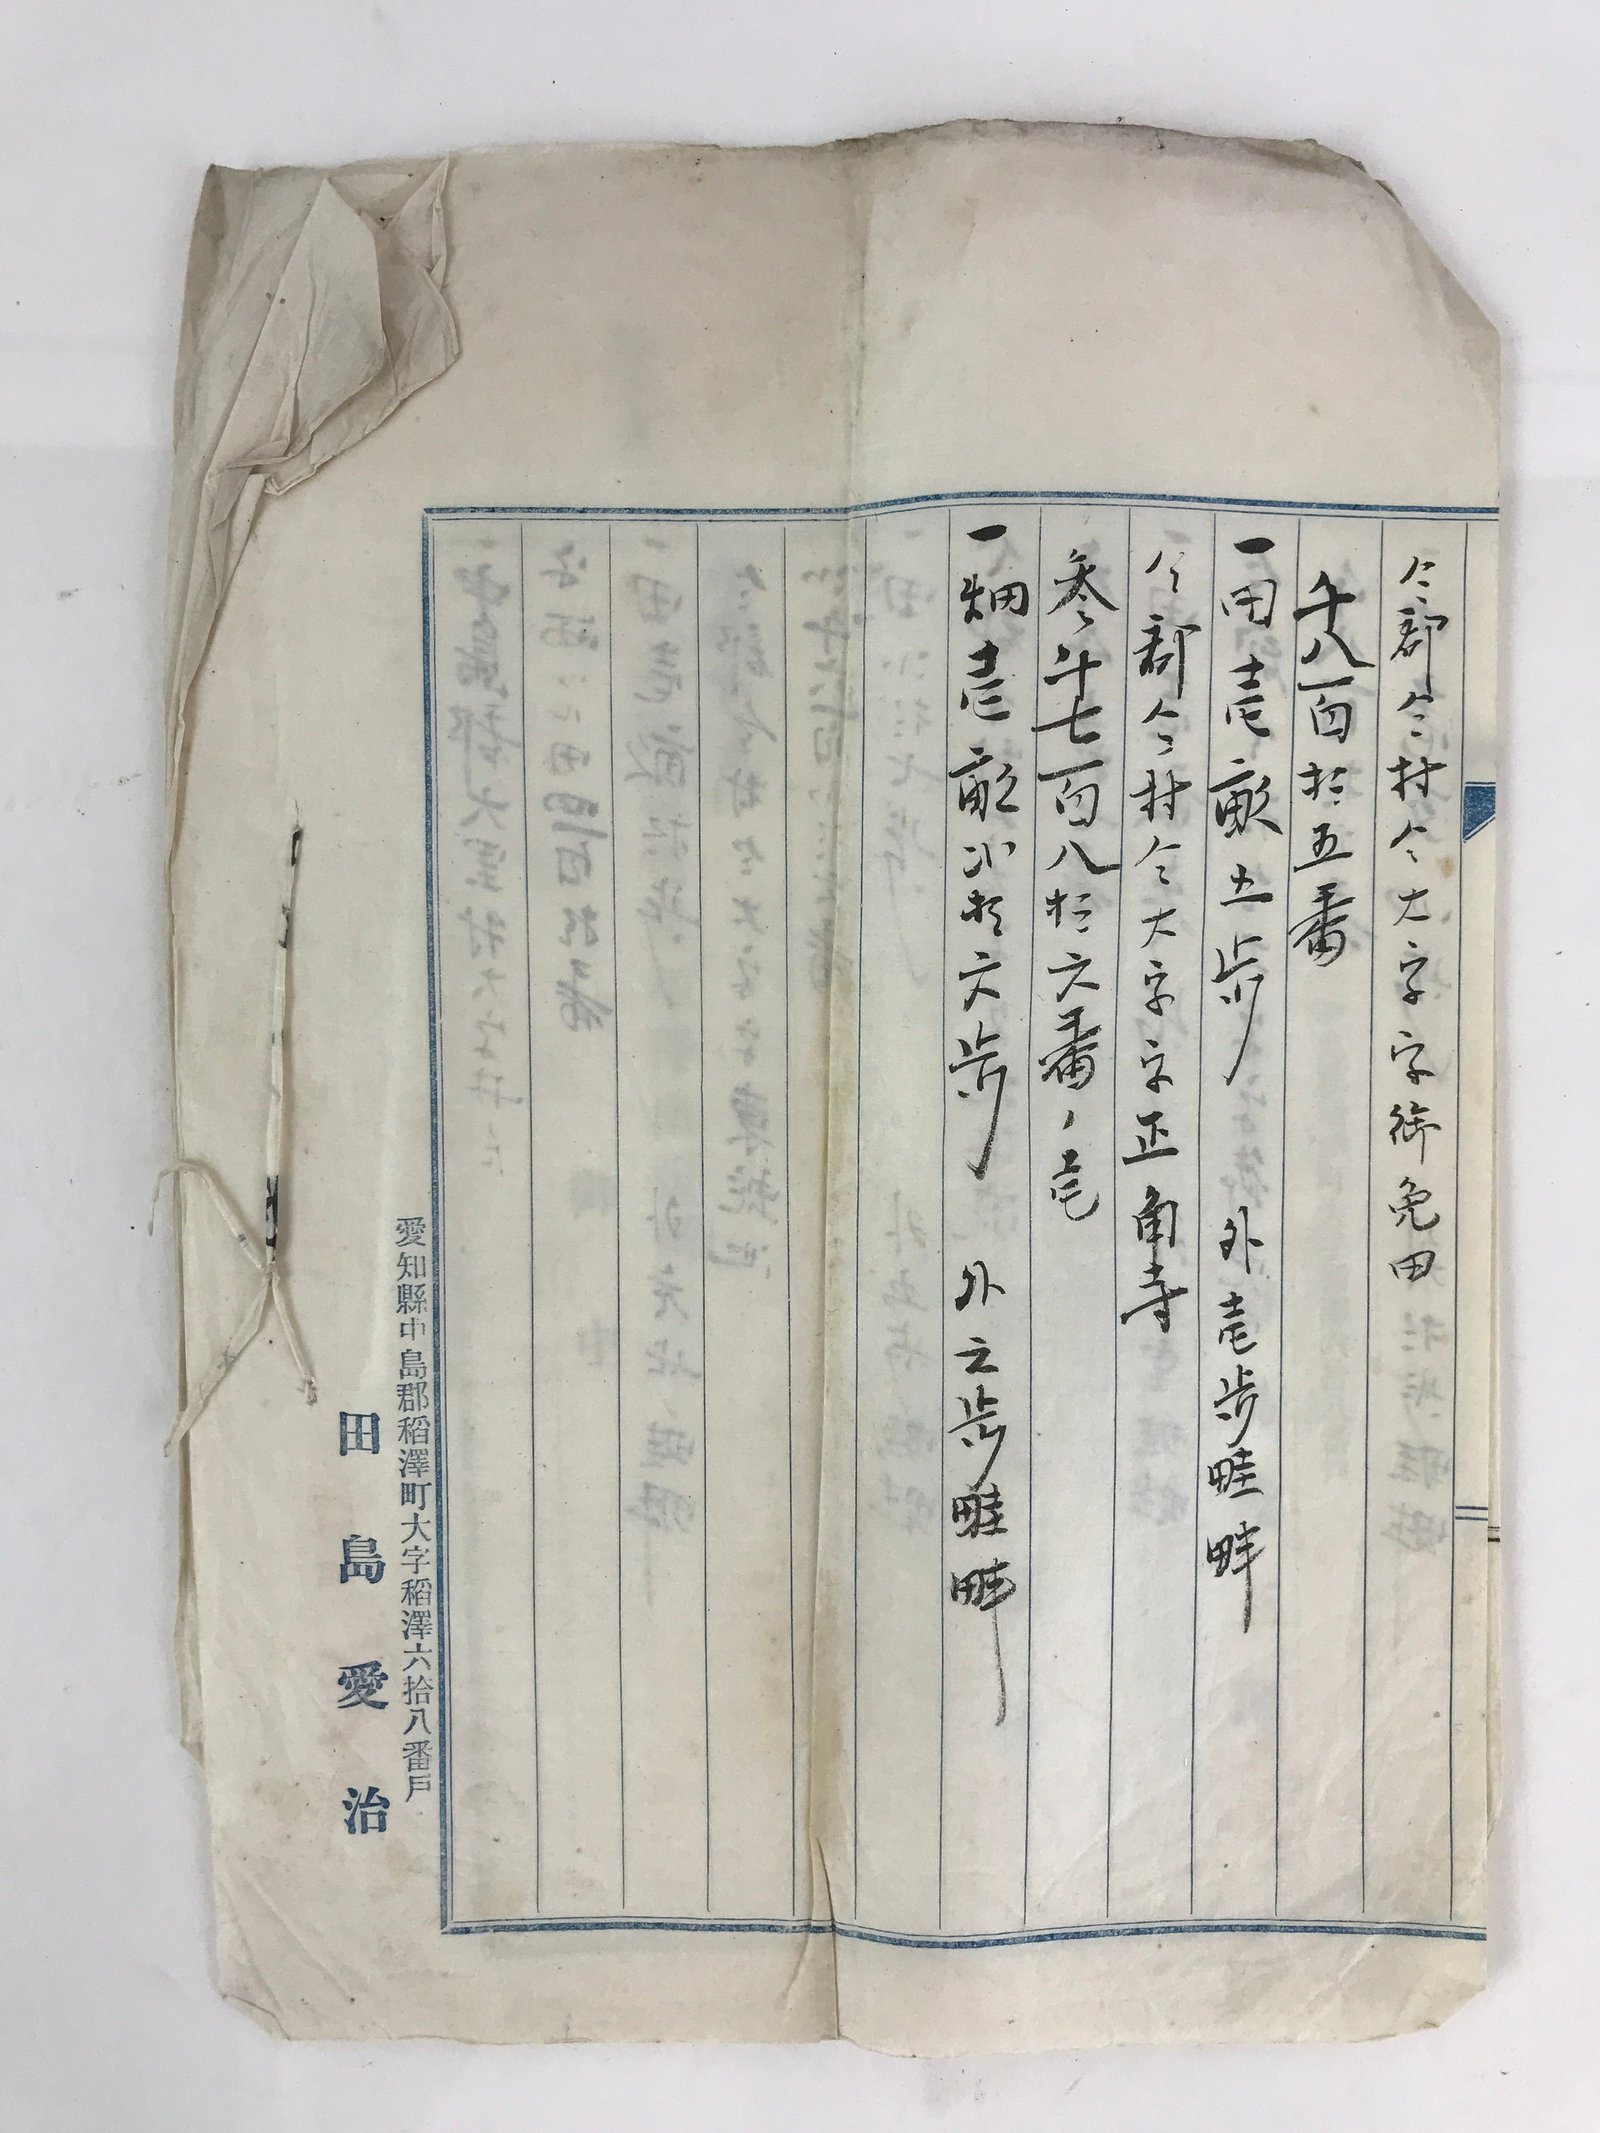 仝郡仝村仝大字字御免田
千八百拾五番
一田壱畝五歩 外壱歩畦畔
仝郡仝村仝大字字正角寺
参千七百八拾六番ノ壱
一畑壱畝弐拾六歩 外五歩畦畔
愛知縣中島郡稻澤町大字稻澤六拾八番戸
田島愛治